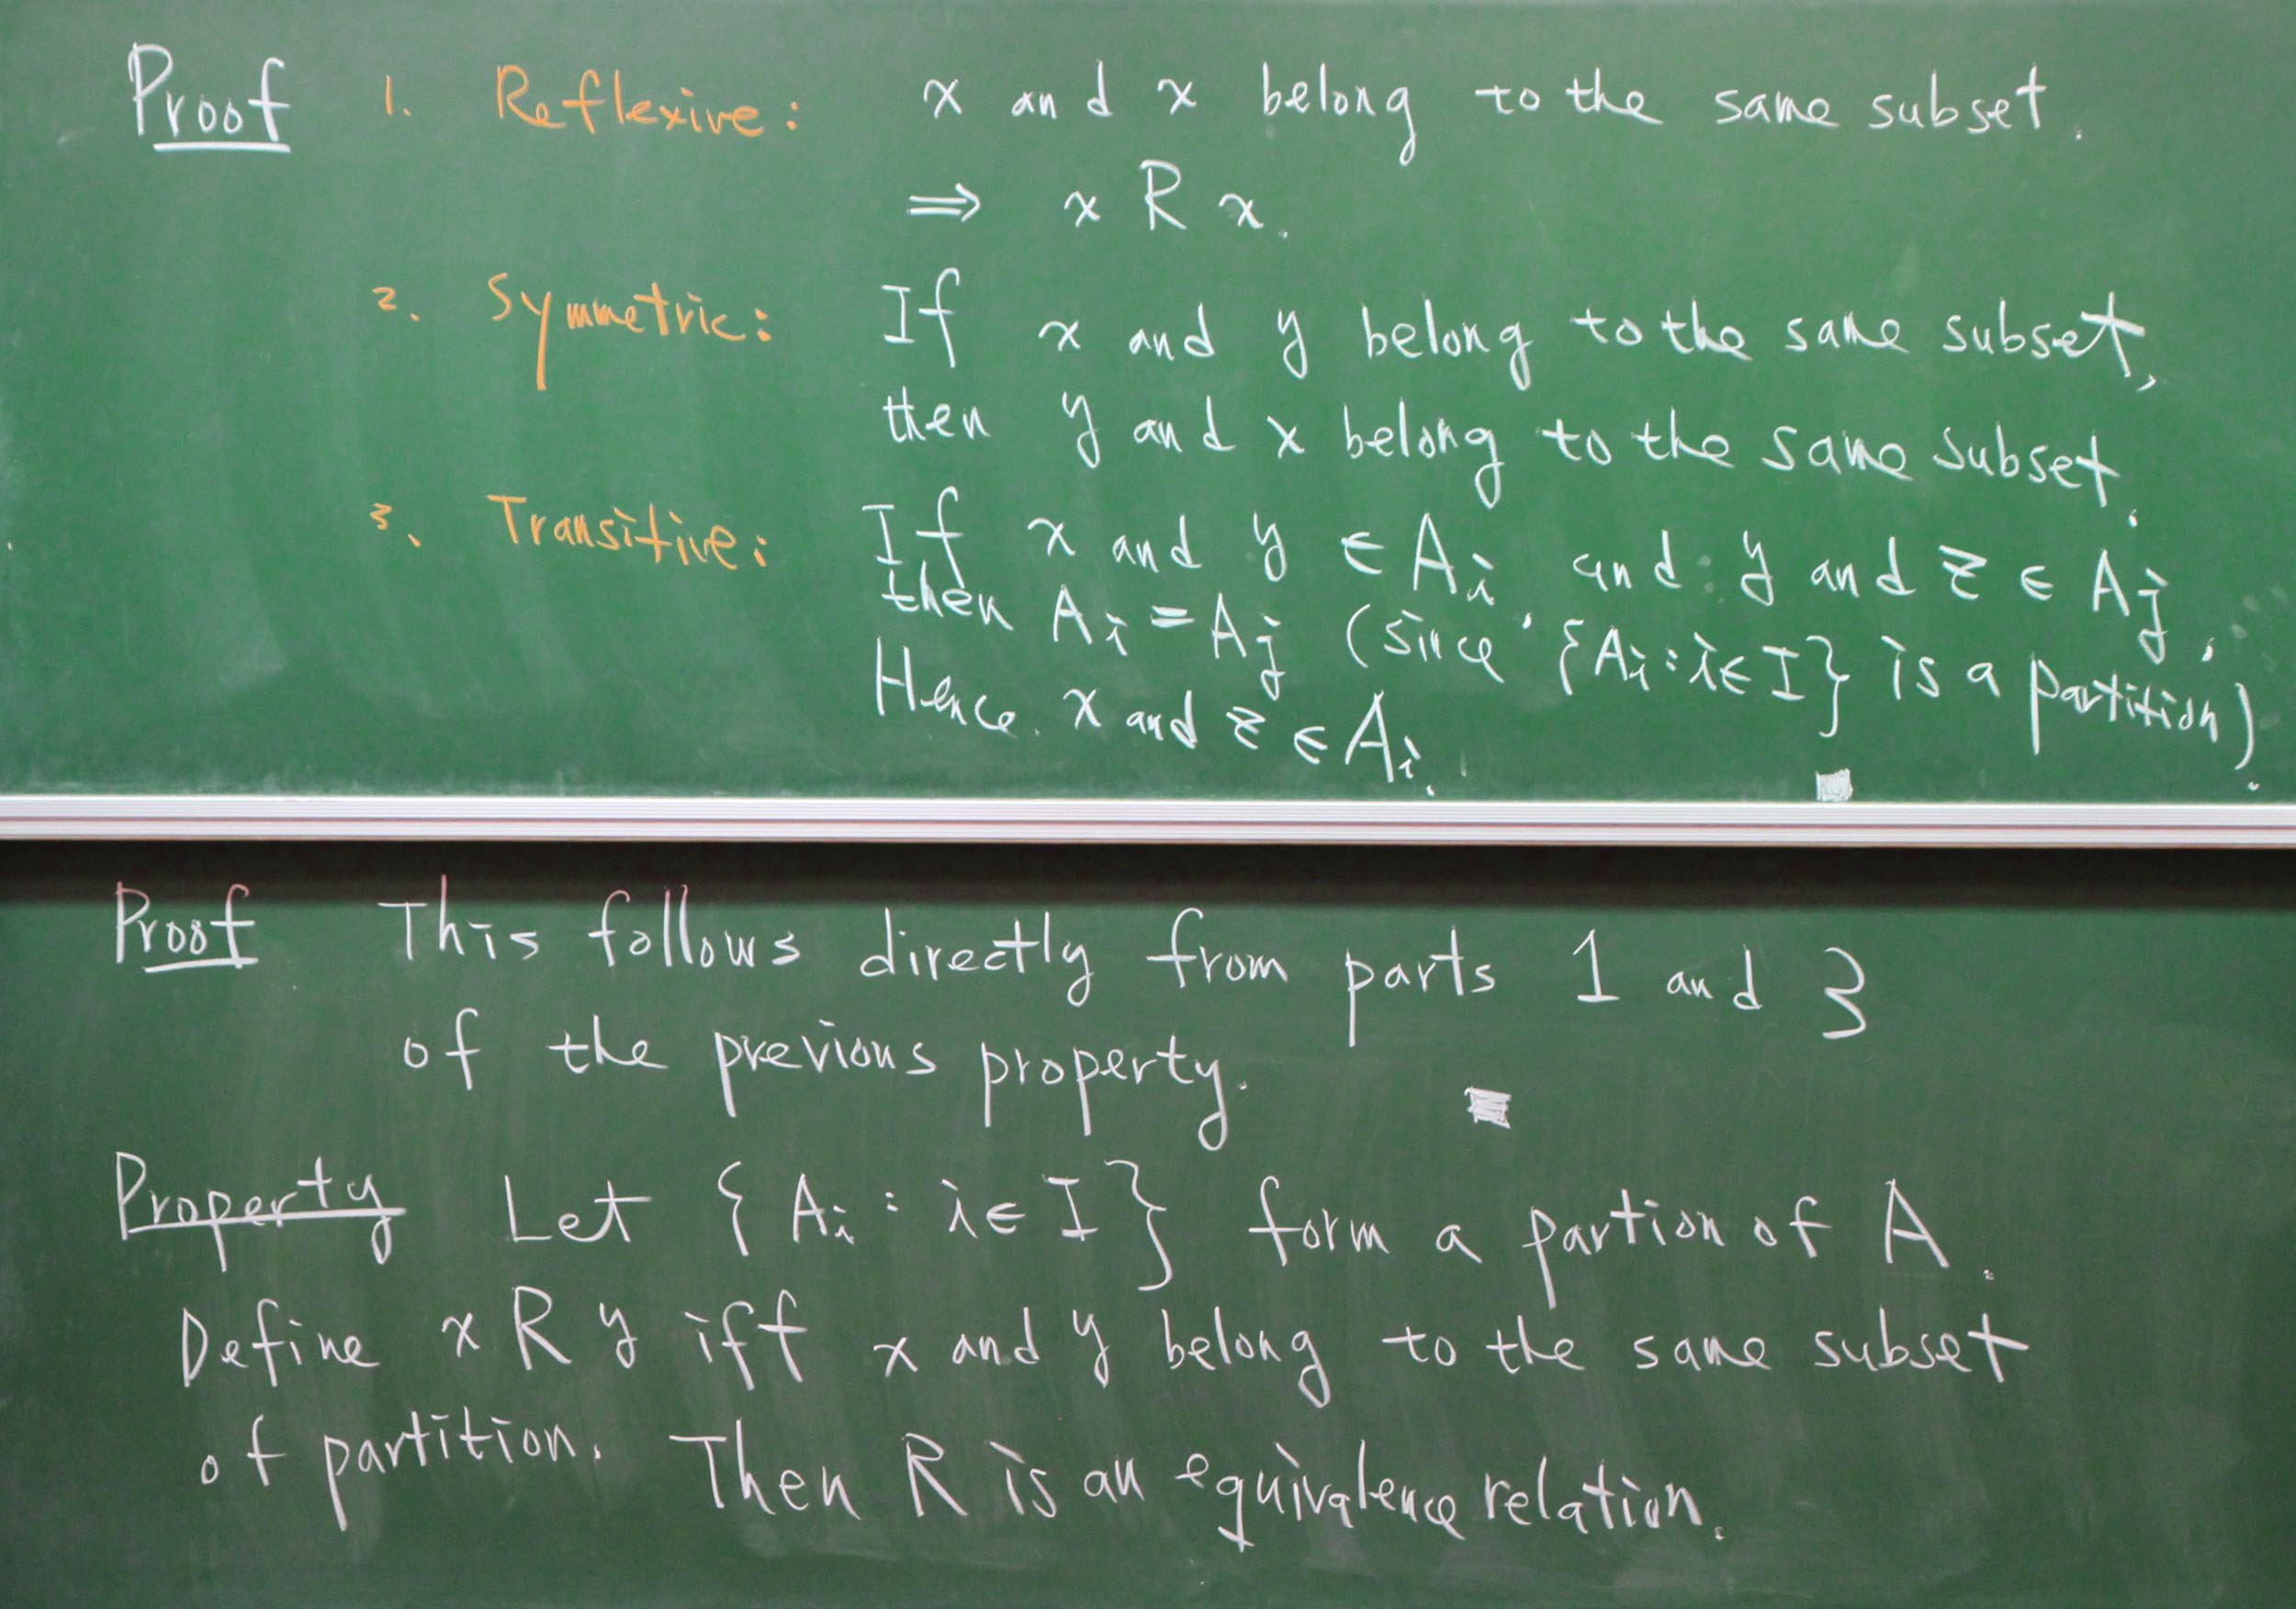 Proof 1. Reflexive: x and x belong to the same subset.
⇒ x R x.
2. Symmetric: If x and y belong to the same subset,
then y and x belong to the same subset.
3. Transitive: If x and y ∈ Ai and y and z ∈ Aj,
then Ai = Aj (since {Ai : i ∈ I} is a partition).
Hence x and z ∈ Ai.
Proof This follows directly from parts 1 and 3
of the previous property.
Property Let {Ai : i ∈ I} form a partion of A.
Define x R y iff x and y belong to the same subset
of partition. Then R is an equivalence relation.